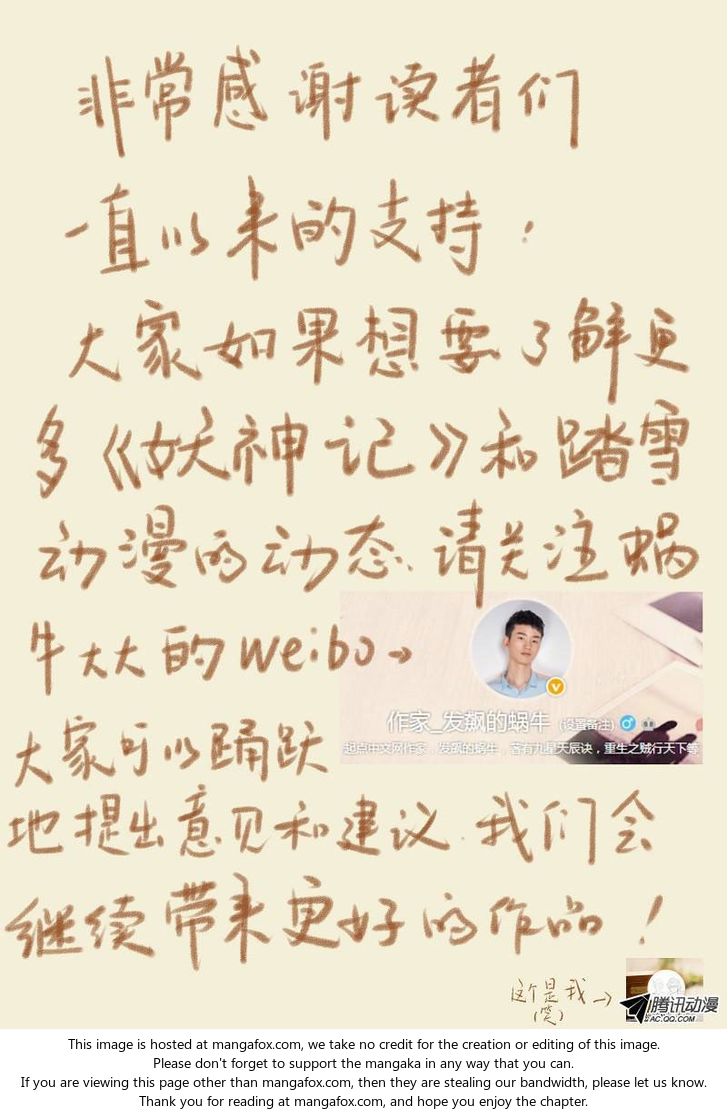 非常感谢读者们
一直以来的支持，
大家如果想要了解更
多《妖神记》和踏雪
动漫的动态、请关注蜗
牛大大的weibo→
作家_发飙的蜗牛 (设置备注)
起点中文网作家，发飙的蜗牛，著有九星天辰诀，重生之贼行天下等
大家可以踊跃
地提出意见和建议.我们会
继续带来更好的作品！
这个是我→
(笑)
腾讯动漫
AC.QQ.COM
This image is hosted at mangafox.com, we take no credit for the creation or editing of this image.
Please don't forget to support the mangaka in any way that you can.
If you are viewing this page other than mangafox.com, then they are stealing our bandwidth, please let us know.
Thank you for reading at mangafox.com, and hope you enjoy the chapter.